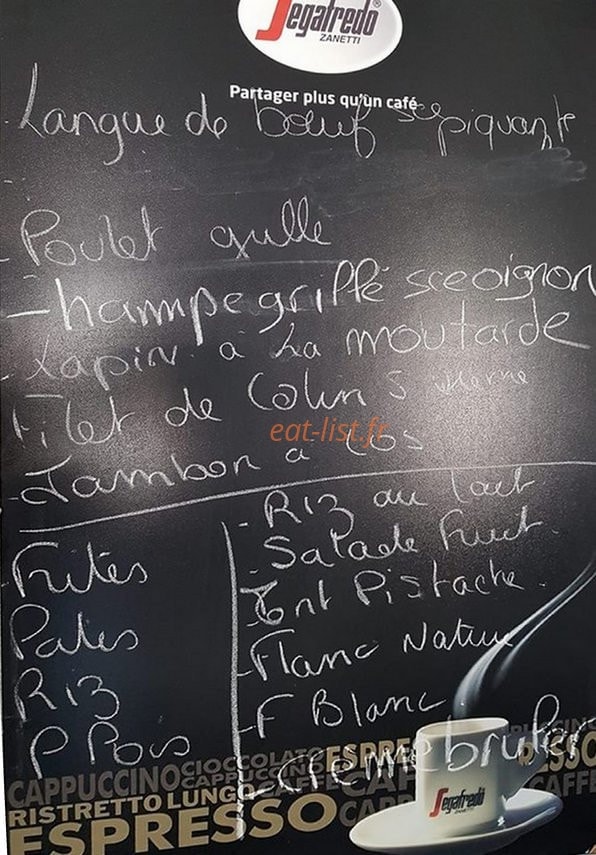 Segafredo®
ZANETTI
Partager plus qu'un café
- Langue de bœuf sce piquante
- Poulet grille
- hampe grillé sce oignon
- Lapin à La moutarde
Filet de Colin S
- Jambon a Los
- Frites
Pates
Riz
P Pois
- Riz au Lait
- Salade Fruit.
- Ent Pistache.
- Flanc Nature
- F Blanc
- creme bruler
CAPPUCCINO CIOCCOLATO ESPRESSO
CAPPUCCINO CAFFÈ
RISTRETTO LUNGO
ESPRESSO
Segafredo
eat-list.fr